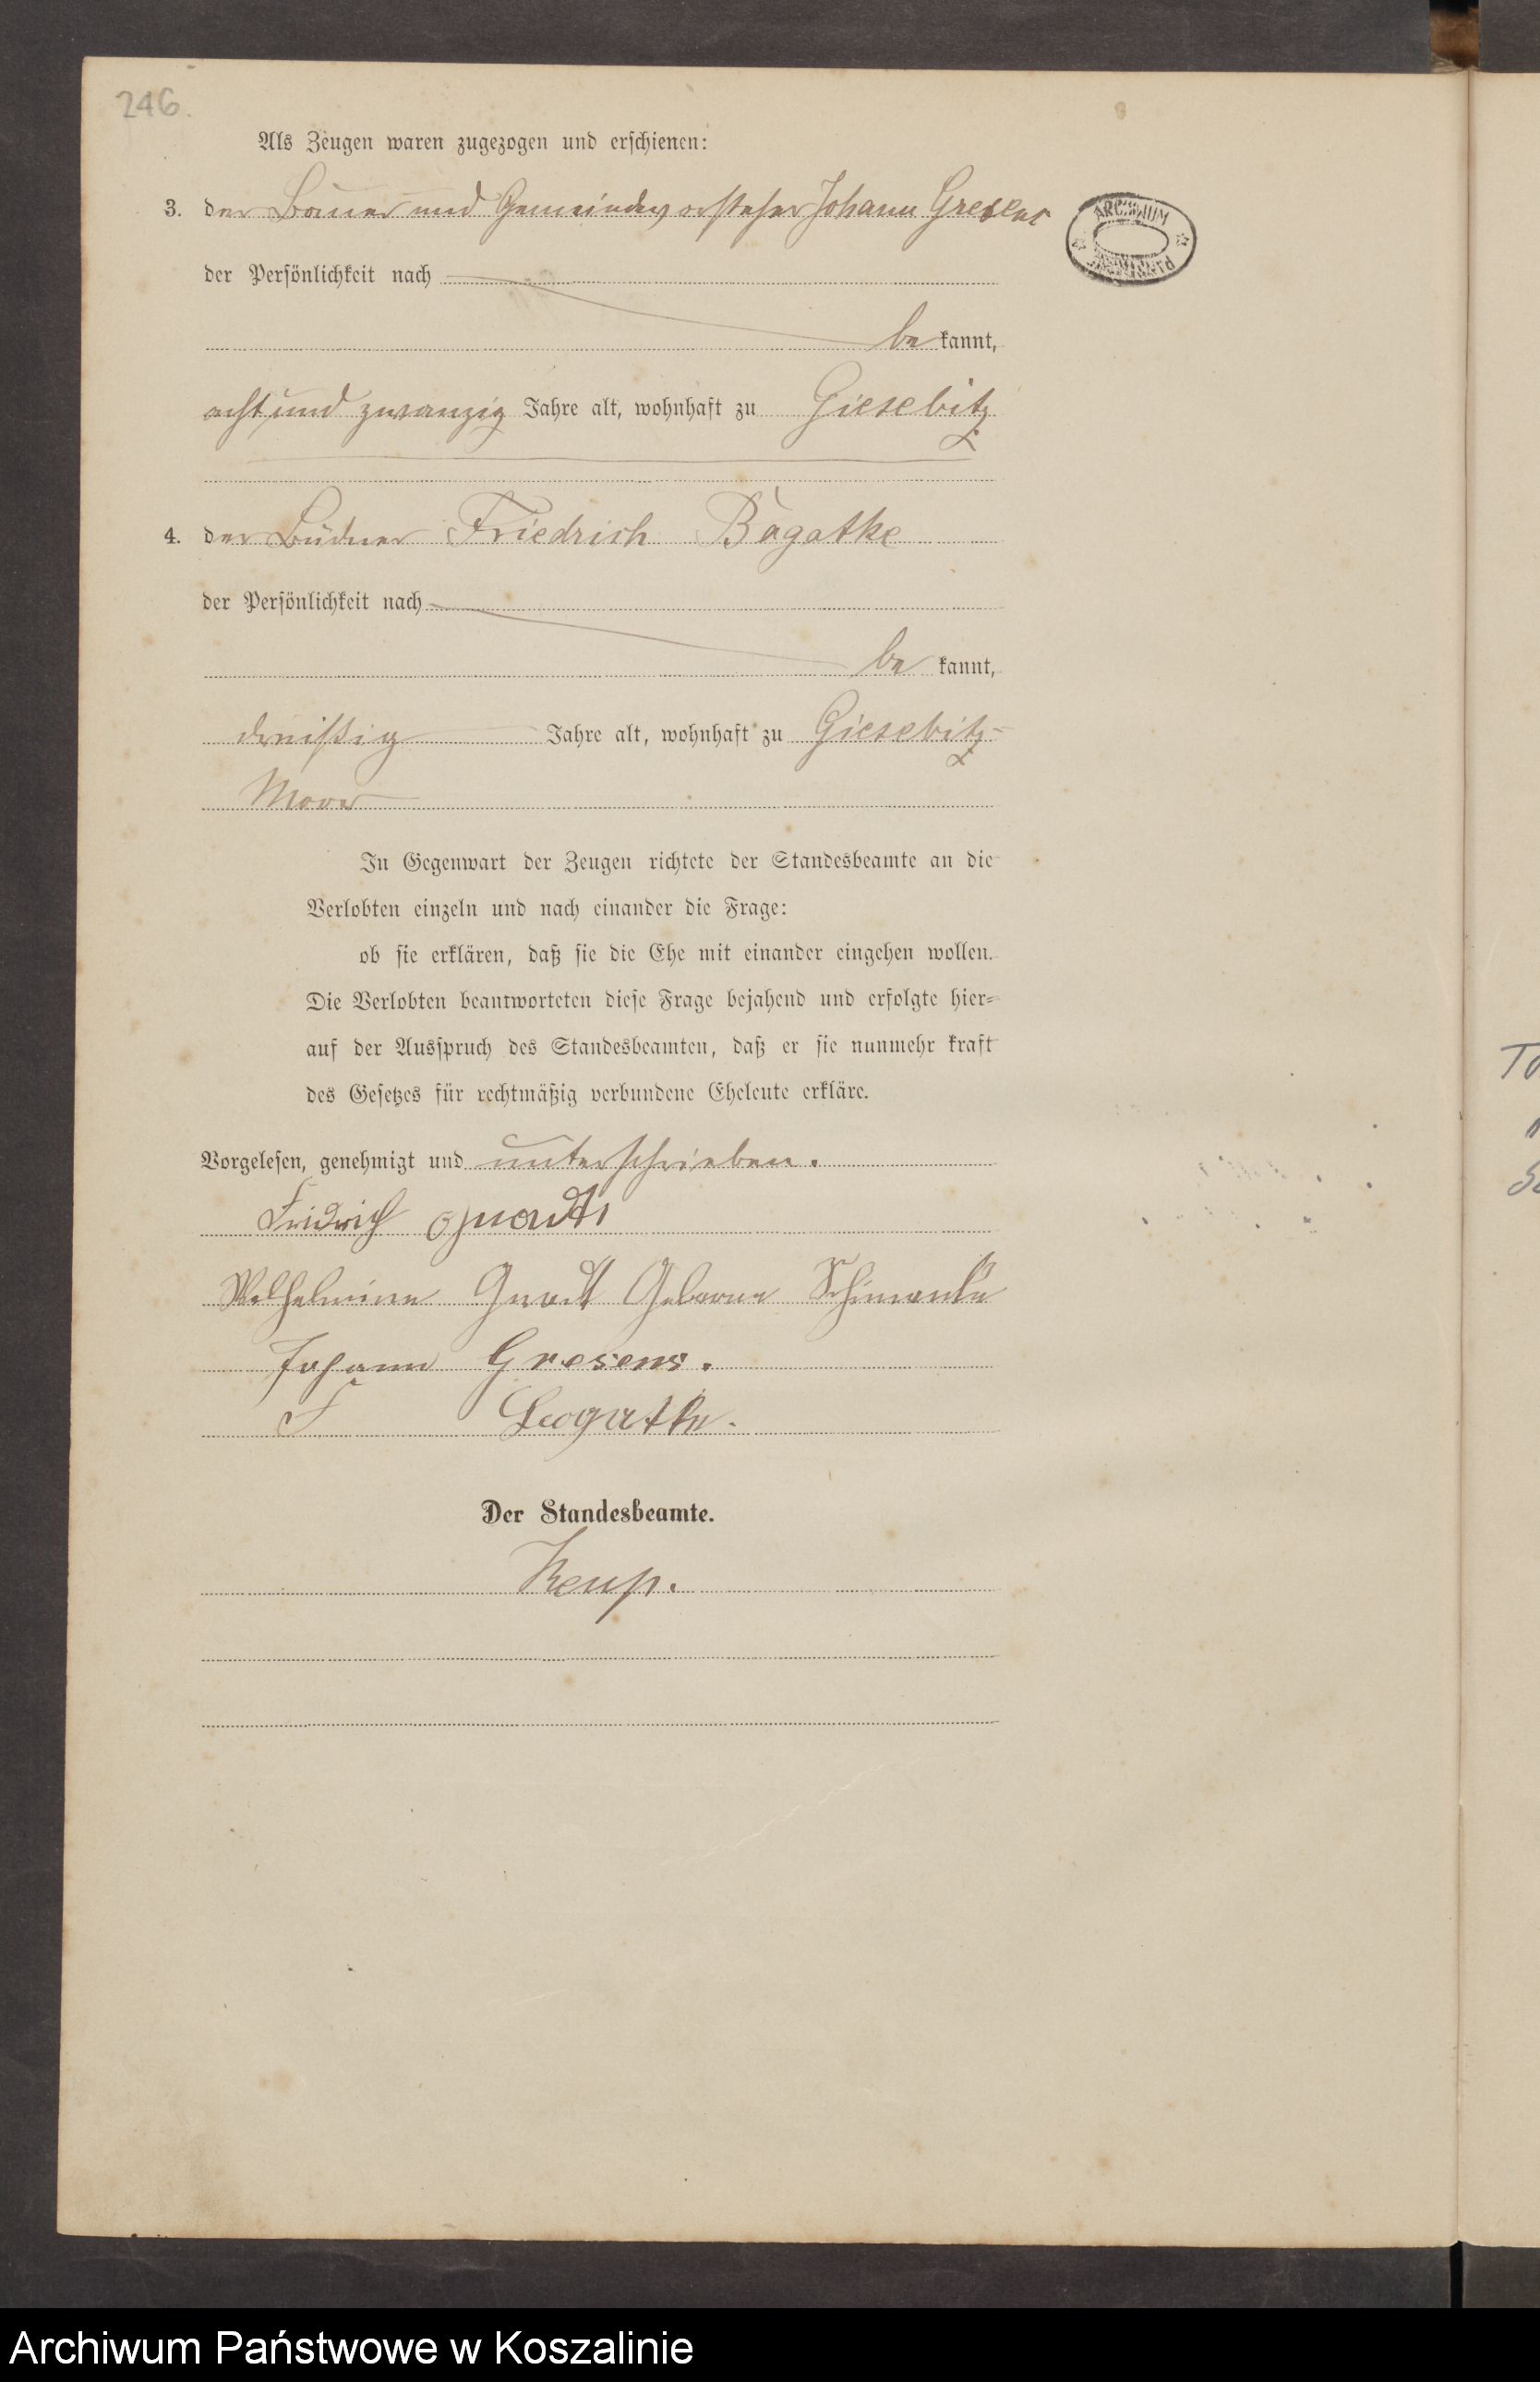 246.
Als Zeugen waren zugezogen und erschienen:
3. der Bauer und Gemeindevorsteher Johann Gresens
der Persönlichkeit nach
be kannt,
acht und zwanzig Jahre alt, wohnhaft zu Giesebitz
4. der Büdner Friedrich Bagatke
der Persönlichkeit nach
be kannt,
dreißig Jahre alt, wohnhaft zu Giesebitz-
Moor
In Gegenwart der Zeugen richtete der Standesbeamte an die
Verlobten einzeln und nach einander die Frage:
ob sie erklären, daß sie die Ehe mit einander eingehen wollen.
Die Verlobten beantworteten diese Frage bejahend und erfolgte hier-
auf der Ausspruch des Standesbeamten, daß er sie nunmehr kraft
des Gesetzes für rechtmäßig verbundene Eheleute erkläre.
Vorgelesen, genehmigt und unterschrieben.
Fridrich
Wilhelmine Geborne
Johann Gresens.
F Bogatke.
Der Standesbeamte.
Keup.
ARCHIWUM
Archiwum Państwowe w Koszalinie